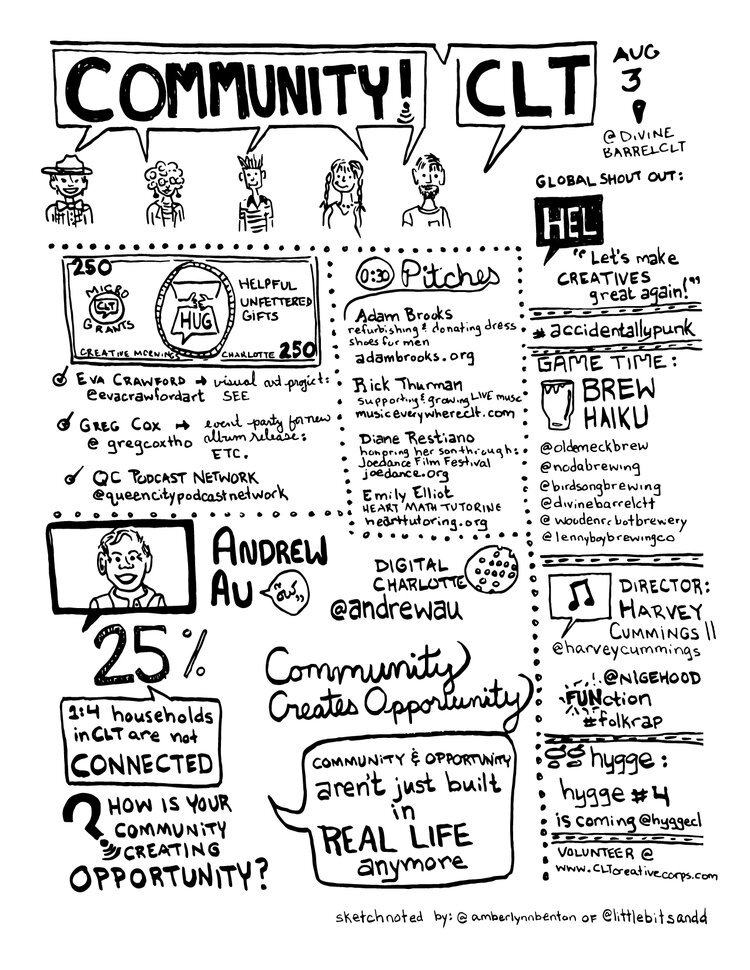 COMMUNITY!
CLT
AUG
3
@DIVINE
BARRELCLT
GLOBAL SHOUT OUT:
HEL
"Let's make
CREATIVES
great again!"
#accidentallypunk
GAME TIME:
BREW
HAIKU
@oldemeckbrew
@nodabrewing
@birdsongbrewing
@divinebarrelclt
@woodenrobotbrewery
@lennyboybrewingco
DIRECTOR:
HARVEY
CUMMINGS II
@harveycummings
@NIGEHOOD
FUNction
#folkrap
hygge:
hygge #4
is coming @hyggecl
VOLUNTEER @
www.CLTcreativecorps.com
250
MICRO
CLT
GRANTS
HUG
HELPFUL
UNFETTERED
GIFTS
CREATIVE MORNINGS CHARLOTTE 250
EVA CRAWFORD → visual art project:
@evacrawfordart SEE
GREG COX → event party for new
@gregcoxtho album release:
ETC.
QC PODCAST NETWORK
@queencitypodcastnetwork
0:30 Pitches
Adam Brooks
refurbishing & donating dress
shoes for men
adambrooks.org
Rick Thurman
supporting & growing LIVE music
musiceverywhereclt.com
Diane Restiano
honoring her son through:
Joedance Film Festival
joedance.org
Emily Elliot
HEART MATH TUTORING
hearttutoring.org
ANDREW
AU
"ow"
DIGITAL
CHARLOTTE
@andrewau
25%
1:4 households
in CLT are not
CONNECTED
? HOW IS YOUR
COMMUNITY
CREATING
OPPORTUNITY?
Community
Creates Opportunity
COMMUNITY & OPPORTUNITY
aren't just built
in
REAL LIFE
anymore
sketchnoted by: @amberlynnbenton OF @littlebitsandd